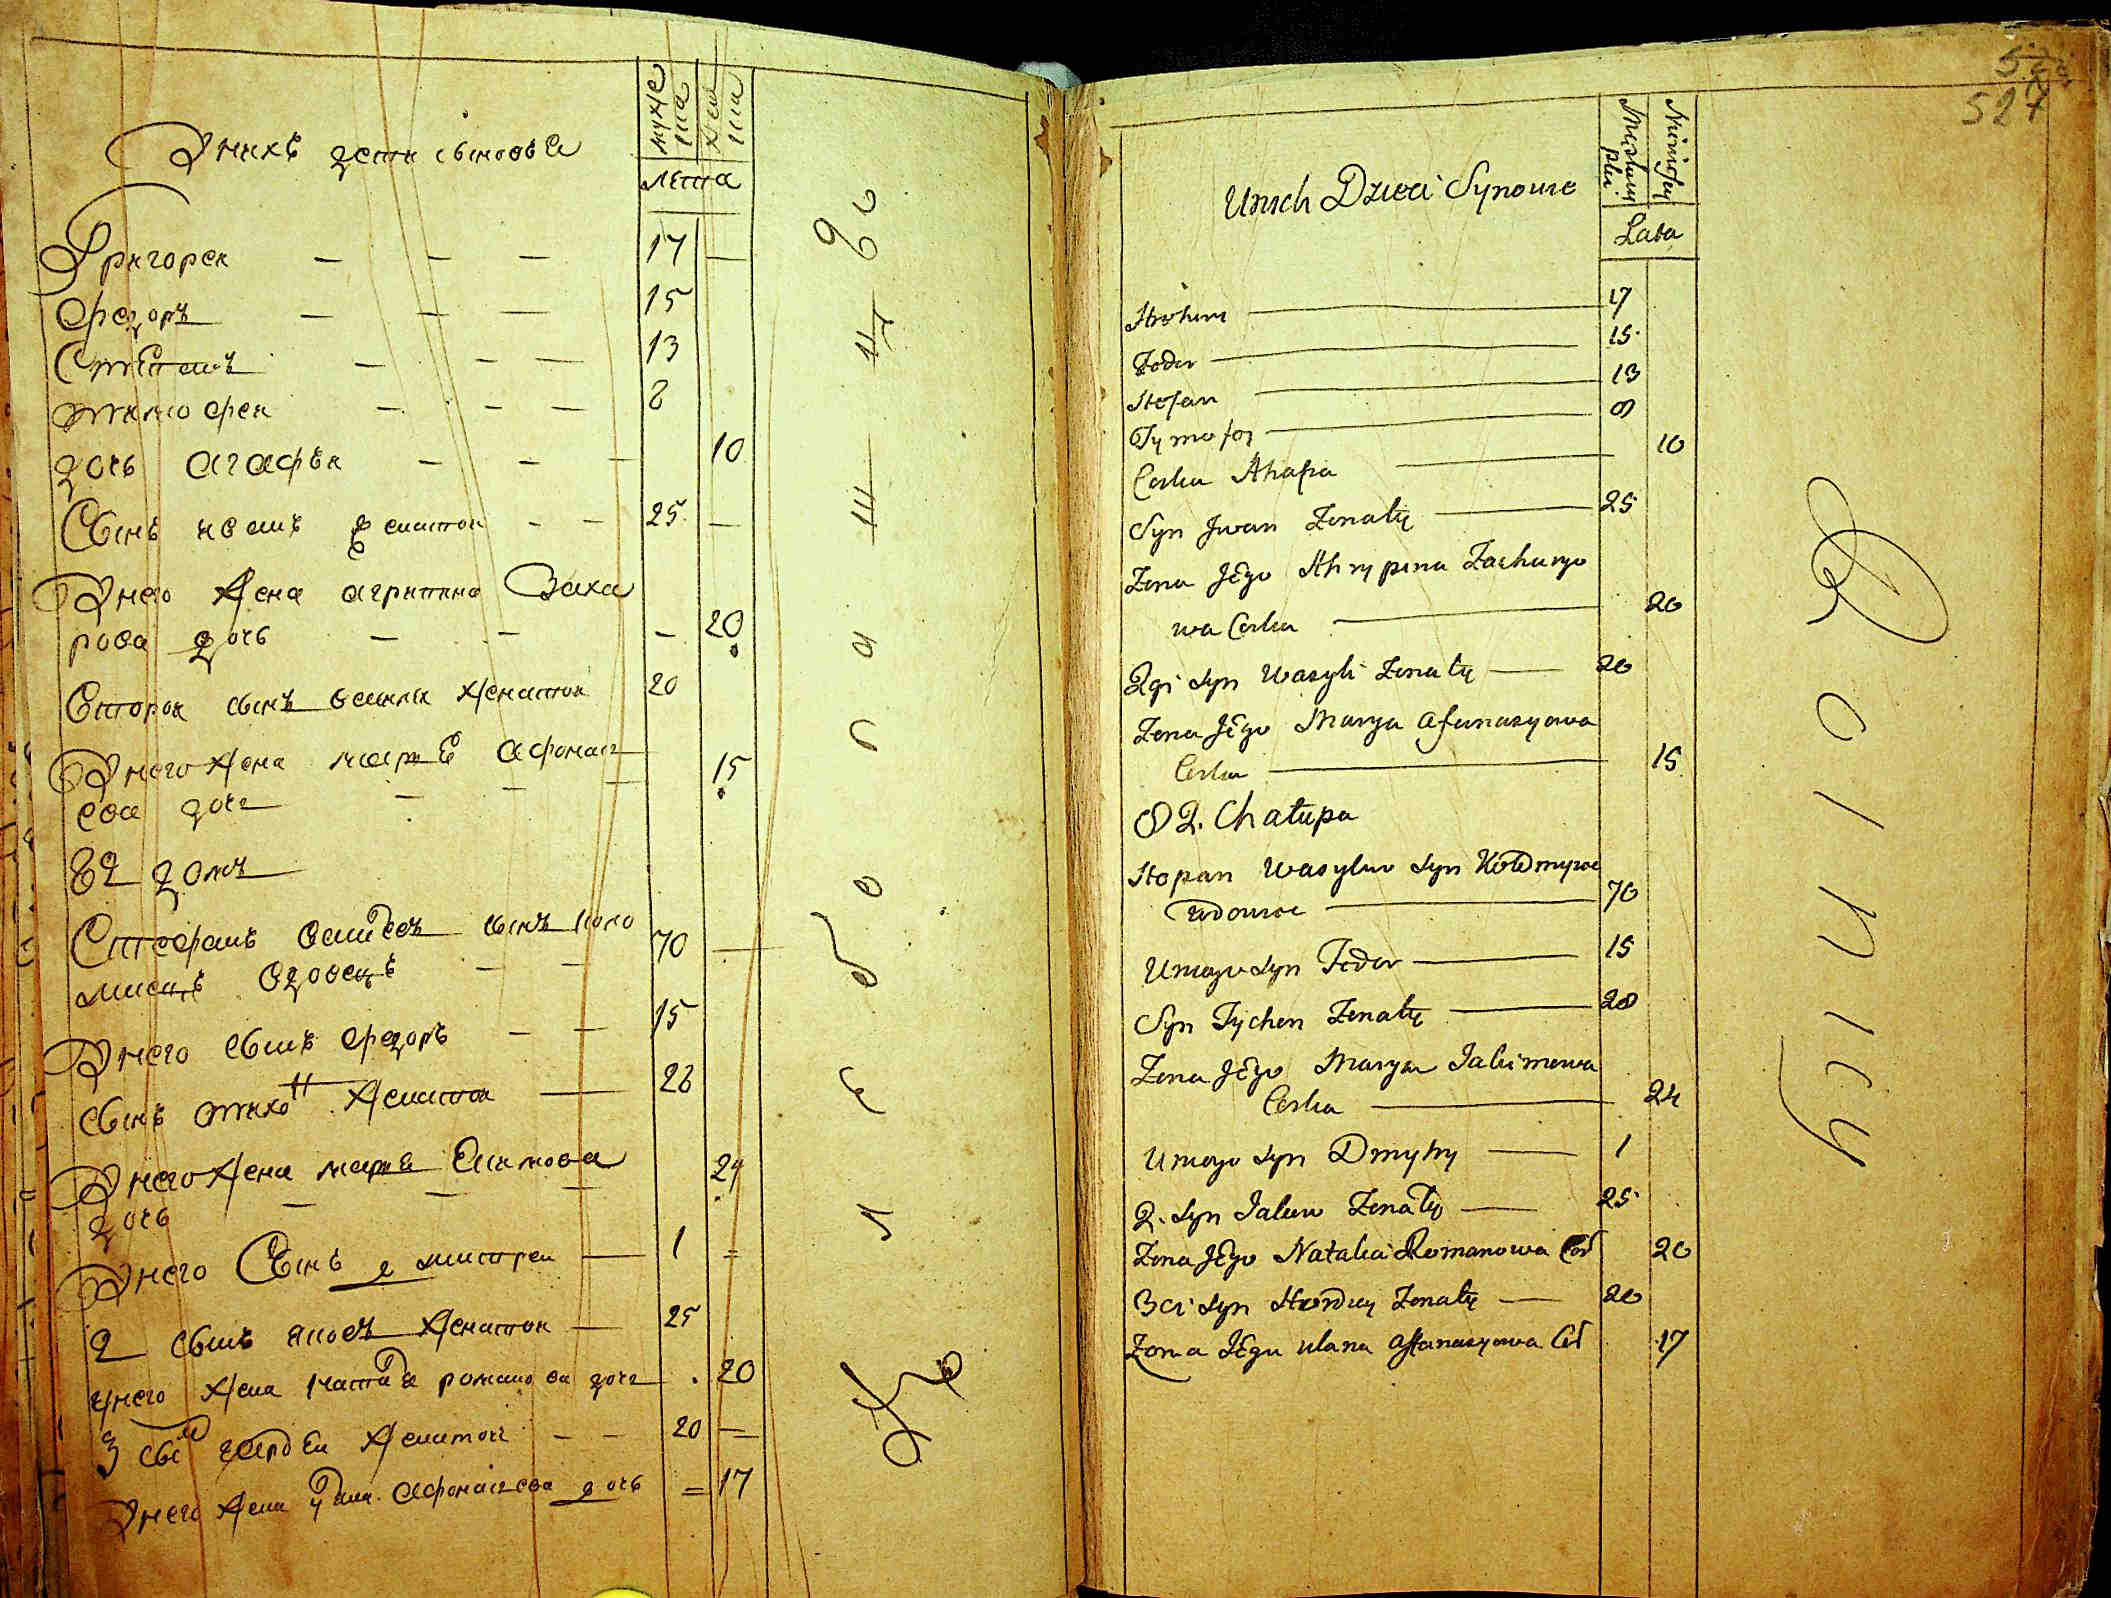 Унихъ дети сыновья
муже
ска
женс
ска
лета
Григореи — — — 17 —
Федоръ — — — 15
Степанъ — — — 13
Тимофеи — — — 8
дочь агафья — — — 10
Сынъ иванъ женатои — — 25 —
Унего жена агрипина Заха
рова дочь — — — 20
Второи сынъ василеи женатои 20
Унего жена маря афонась
ева дочь — — — 15
82 домъ
Стефанъ васильевъ сынъ коло
миецъ вдовецъ — — 70 —
Унего сынъ федоръ — — 15
сынъ тихон женатои — 28
Унего жена маря Екимова
дочь — — — 24
Унего Сынъ дмитреи — 1 =
2 сынъ яковъ женатои — 25
унего жена наталя романова дочь . 20
3 сы гордеи женатои — — 20 —
Унего жена уляна афонасьева дочь = 17
527
Unich Dzieci Synowie
Lata
Hrohory — 17
Fedor — 15
Stefan — 13
Tymofey — 8
Corka Ahafia — 10
Syn Jwan Zonaty — 25
Zona Jego Ahrypina Zacharyo
wa Corka — 20
2gi Syn Wasyli Zonaty — 20
Zona Jego Marya Afanasyowa
Corka — 15
82. Chałupa
Stepan Wasylow Syn Kołomyiec
Wdowiec — 70
Uniego Syn Fedor — 15
Syn Tychon Zonaty — 28
Zona Jego Marya Jakimowa
Corka — 24
Uniego Syn Dmytry — 1
2. Syn Jakow Zonaty — 25
Zona Jego Natalia Romanowa Cor 20
3ci Syn Hordiey Zonaty — 20
Zona Jego Ulana Affanasyowa Cor 17